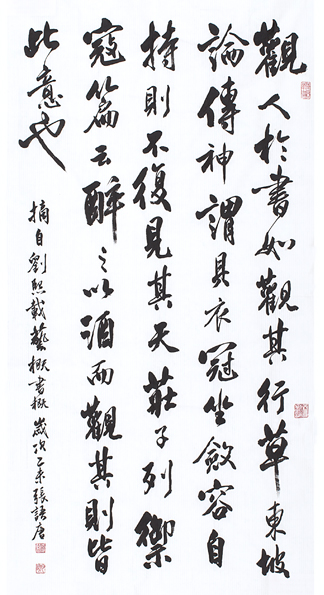 觀人於書如觀其行草東坡
論傳神謂具衣冠坐斂容自
持則不復見其天莊子列禦
寇篇云醉之以酒而觀其則皆
此意也
摘自劉熙載藝概書概歲次乙未張